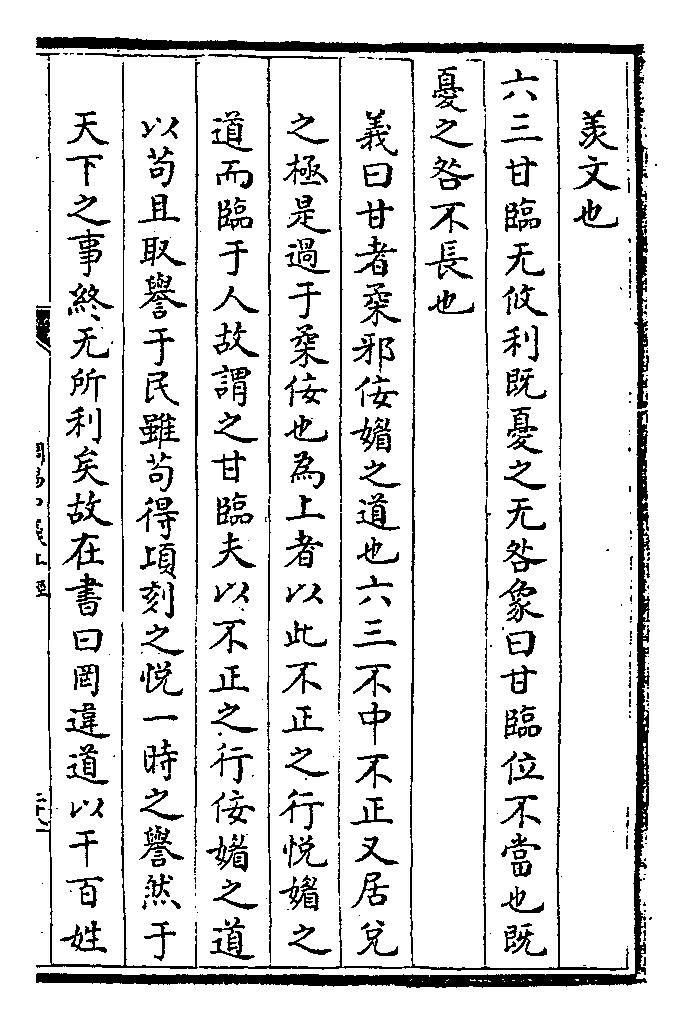 羡文也
六三甘臨无攸利既憂之无咎象曰甘臨位不當也既
憂之咎不長也
義曰甘者柔邪佞媚之道也六三不中不正又居兌
之極是過于柔佞也為上者以此不正之行悅媚之
道而臨于人故謂之甘臨夫以不正之行佞媚之道
以苟且取譽于民雖苟得項刻之悅一時之譽然于
天下之事終无所利矣故在書曰罔違道以干百姓